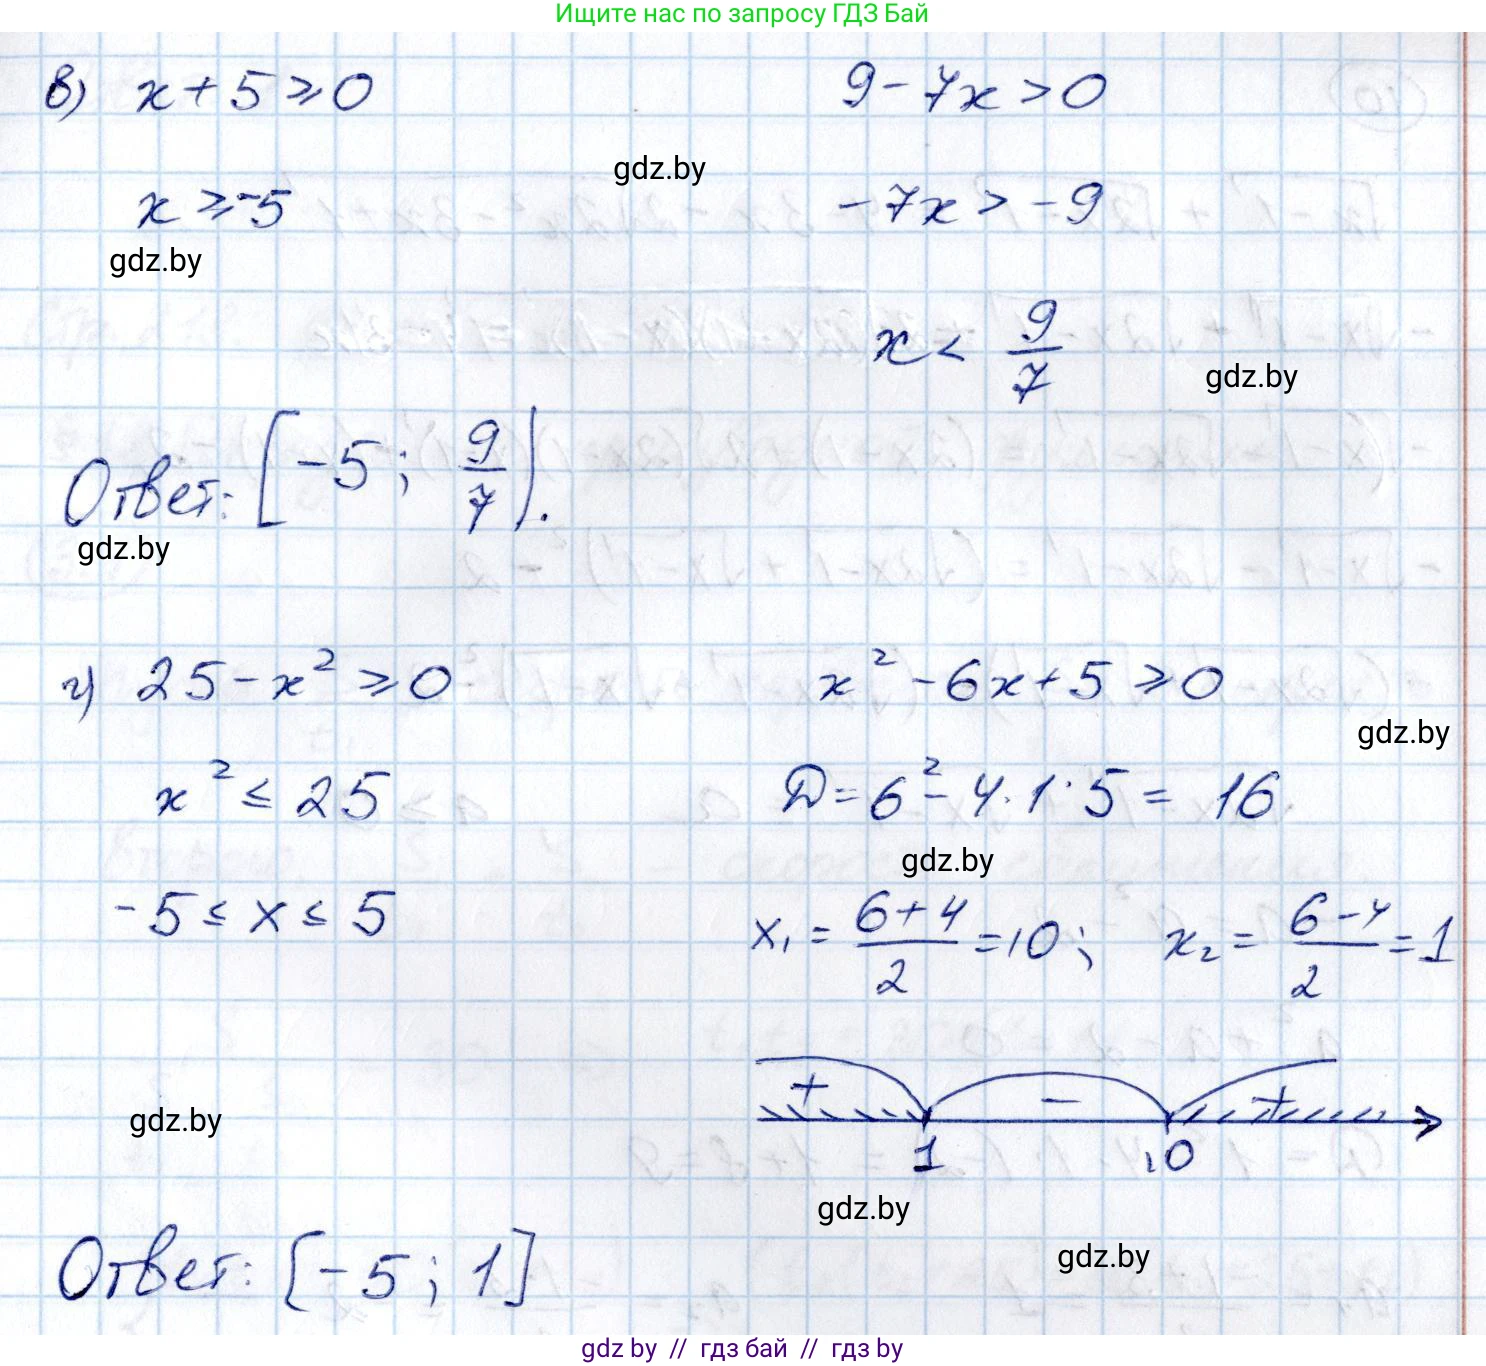 Ищите нас по запросу ГДЗ Бай
в) x + 5 ≥ 0    9 - 7x > 0
gdz.by
x ≥ -5    -7x > -9
gdz.by
x < 9/7
gdz.by
Ответ: [-5; 9/7).
gdz.by
г) 25 - x² ≥ 0    x² - 6x + 5 ≥ 0
gdz.by
x² ≤ 25    D = 6² - 4 · 1 · 5 = 16
gdz.by
-5 ≤ x ≤ 5    x₁ = (6+4)/2 = 10;    x₂ = (6-4)/2 = 1
+ - +
gdz.by
1 10
gdz.by
gdz.by
Ответ: [-5; 1]
gdz.by // гдз бай // гдз by